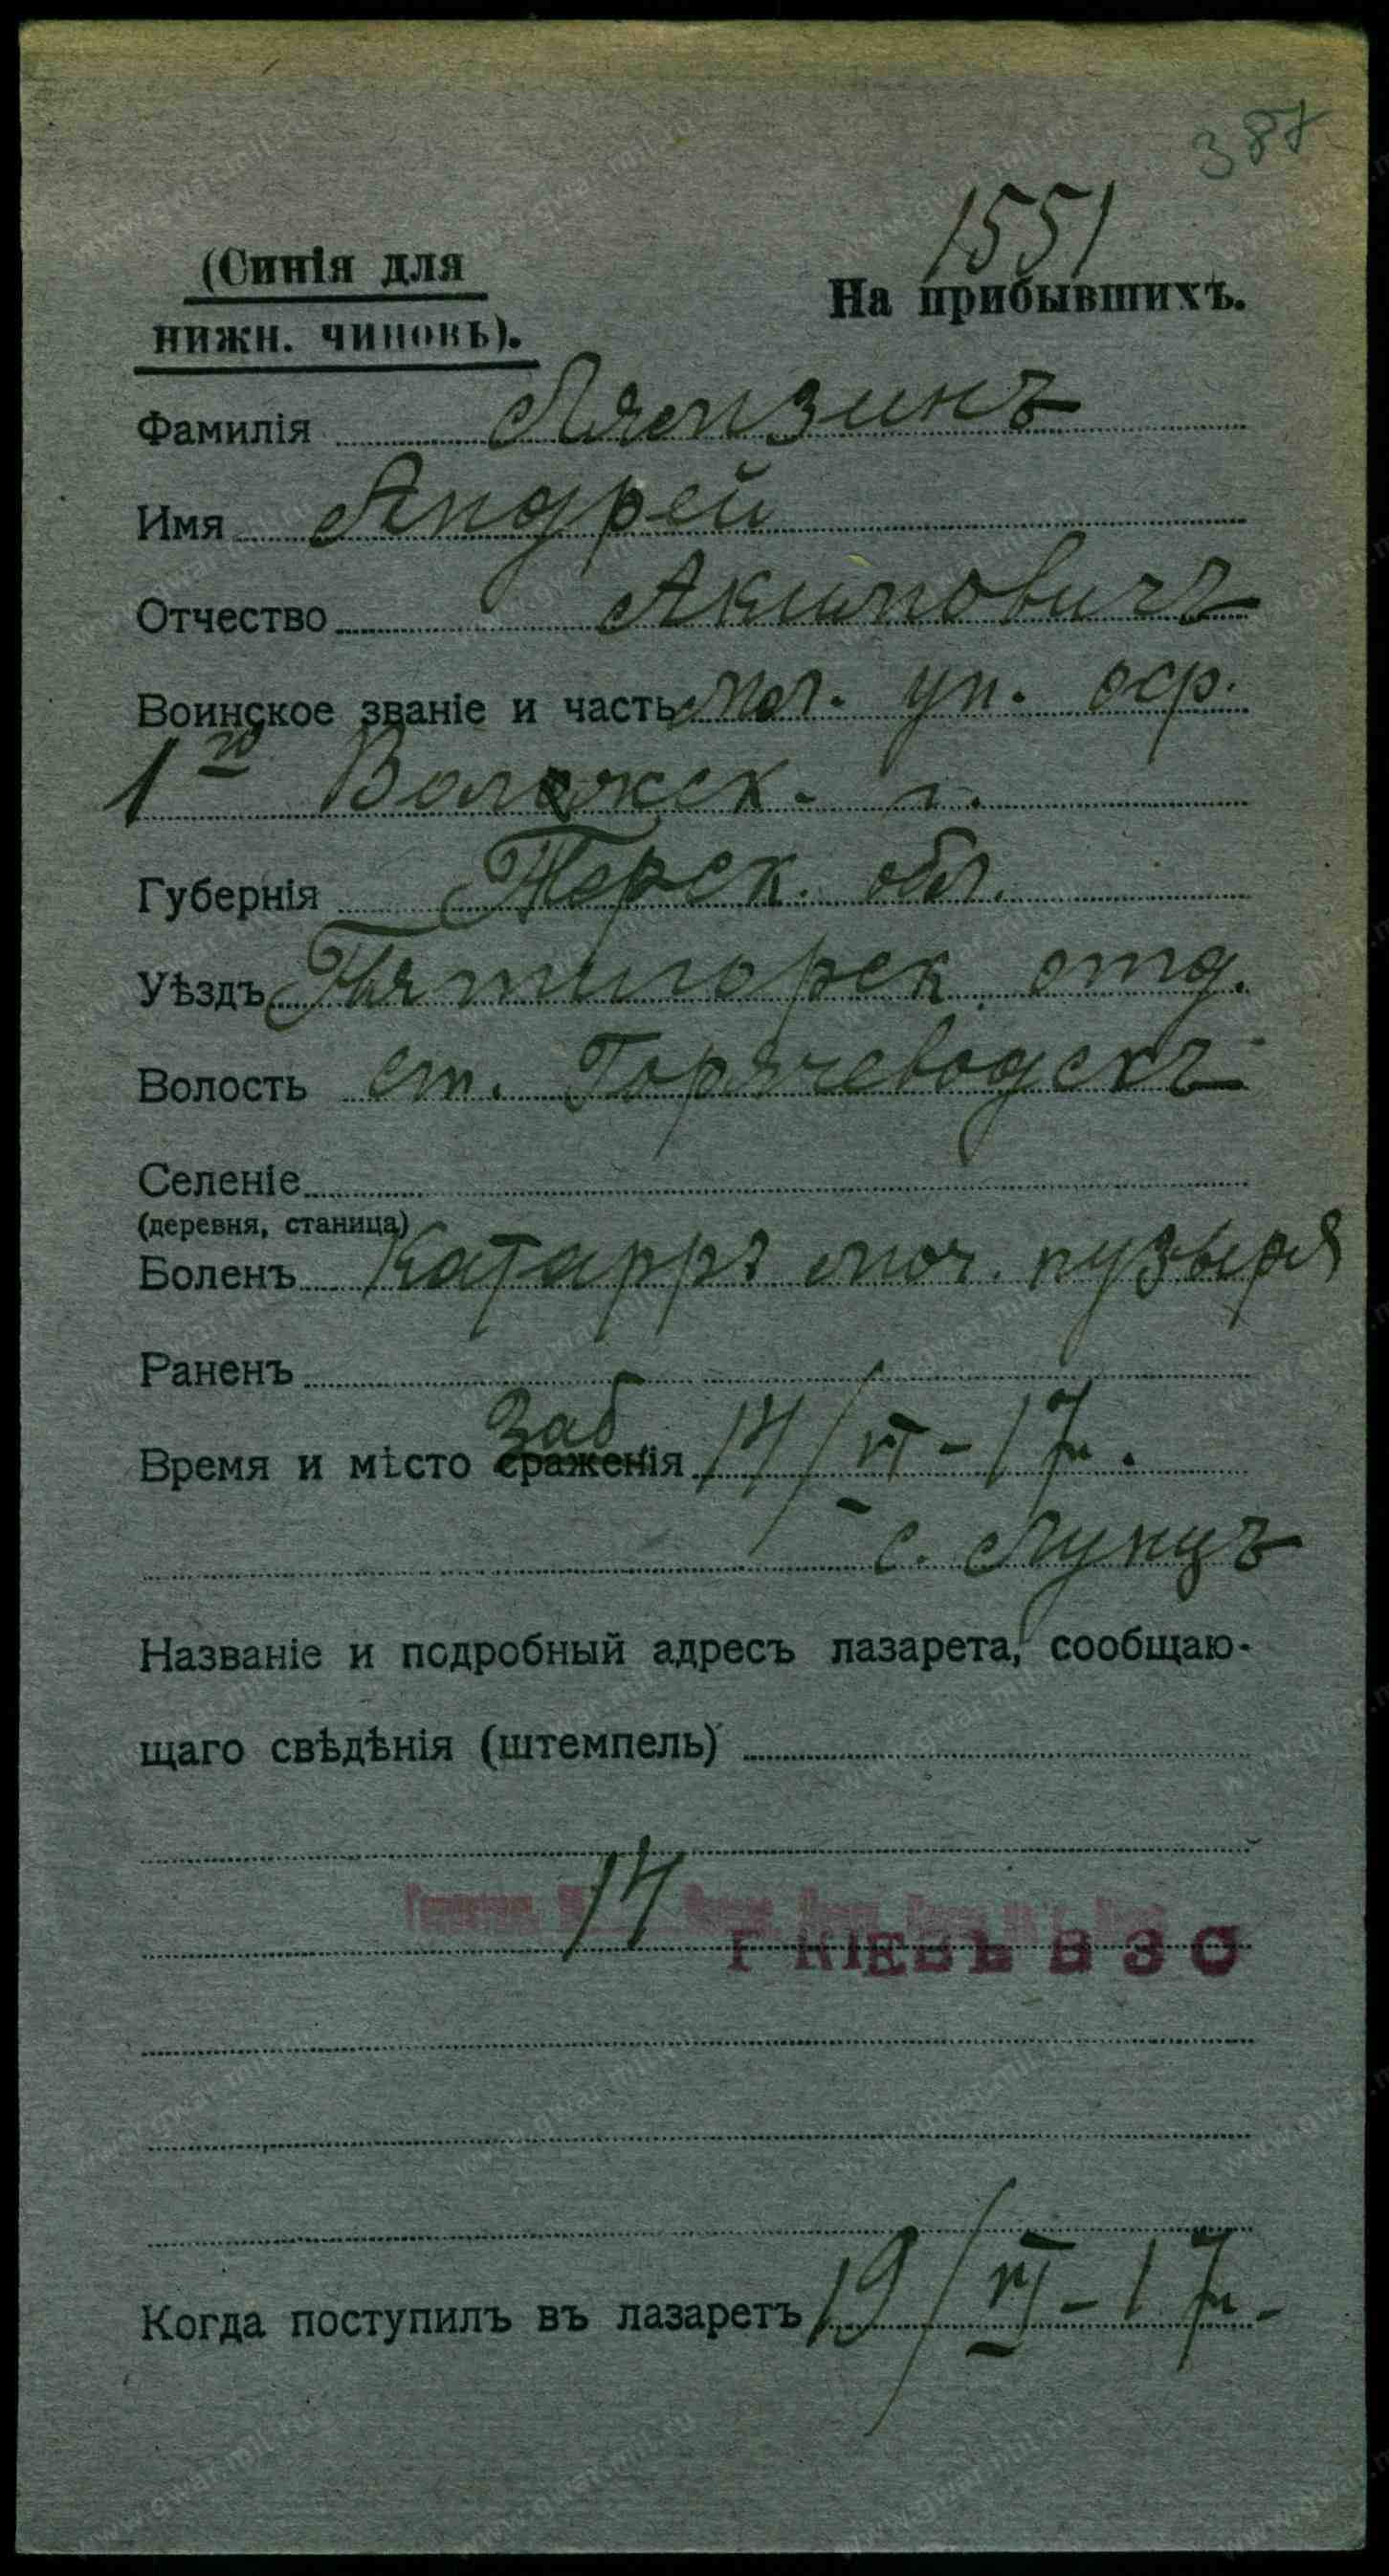 387
1551
(Синія для
нижн. чиновъ).
На прибывшихъ.
Фамилія Лямзинъ
Имя Андрей
Отчество Акимовичъ
Воинское званіе и часть мл. ун. оф.
1го Волжск. п.
Губернія Терск. обл.
Уѣздъ Пятигорск отд.
Волость ст. Горячеводскъ
Селеніе
(деревня, станица)
Боленъ Катарръ моч. пузыря
Раненъ
Заб
Время и мѣсто сраженія 14/VI-17 г.
с. Лунцъ
Названіе и подробный адресъ лазарета, сообщаю-
щаго свѣдѣнія (штемпель)
14
Г КІЕВЪ В З О
Когда поступилъ въ лазаретъ 19/VI-17 г.
www.gwar.mil.ru